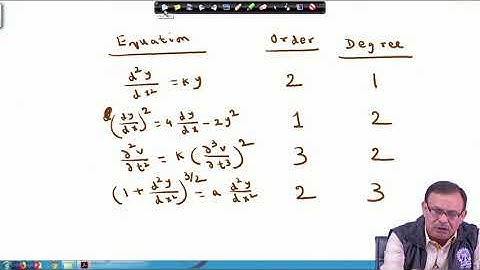 Equation Order Degree
d²y/dx² = k y 2 1
(dy/dx)² = 4 dy/dx - 2y² 1 2
∂²v/∂t² = k (∂³v/∂t³)² 3 2
(1 + d²y/dx²)^3/2 = a d²y/dx² 2 3